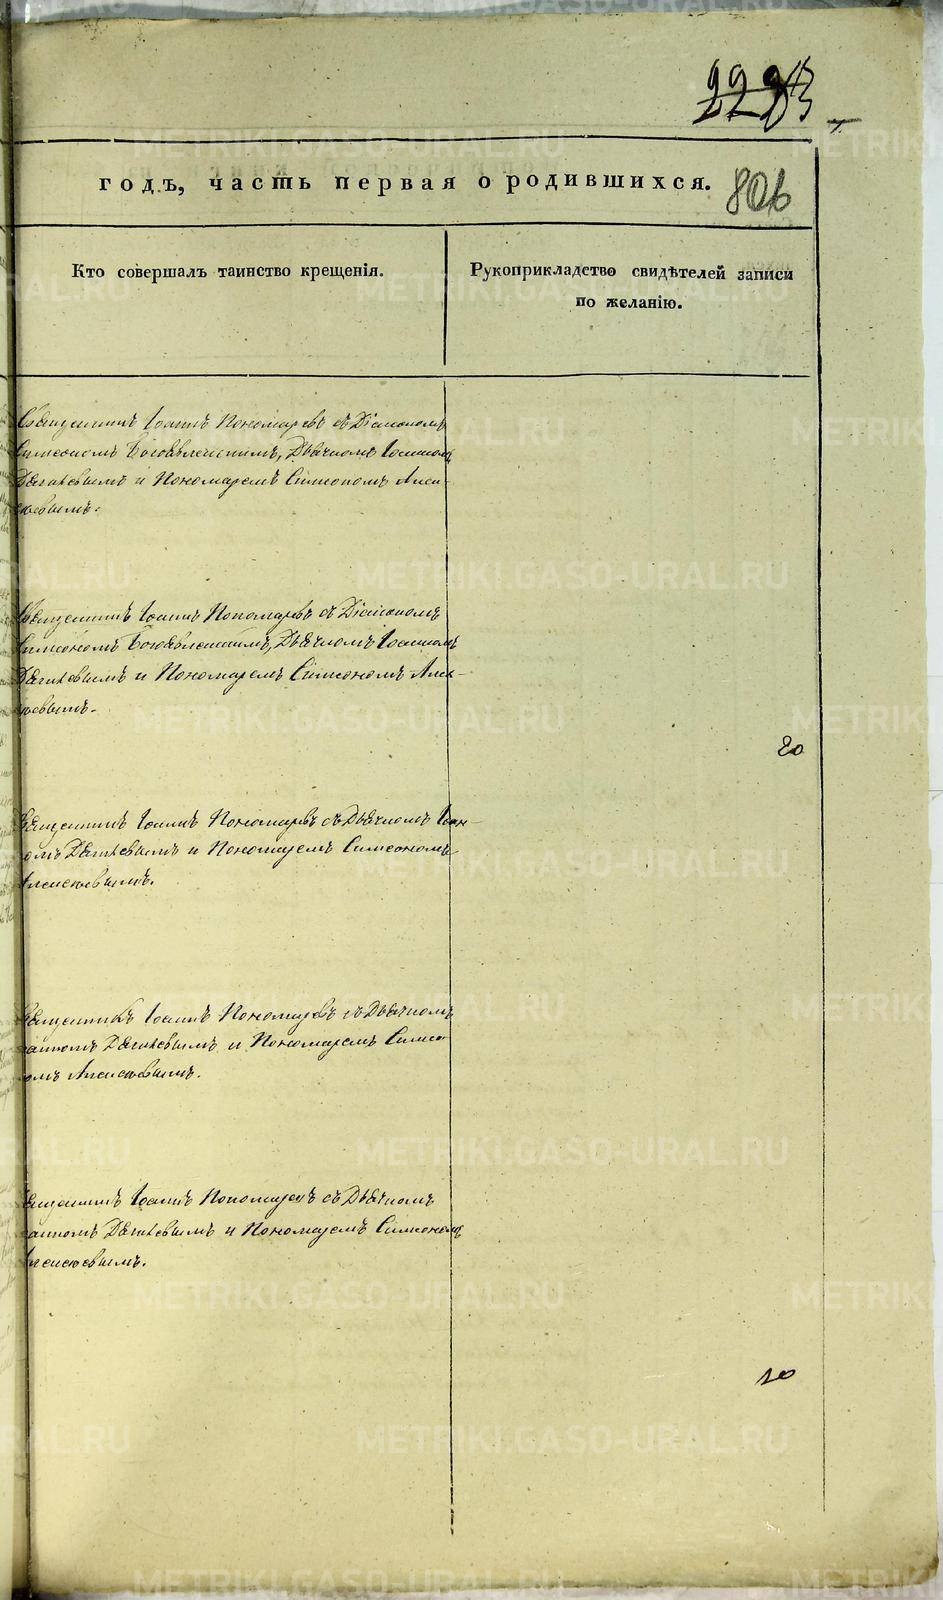 годъ, часть первая о родившихся.
806
Кто совершалъ таинство крещенія.
Рукоприкладство свидѣтелей записи
по желанію.
Священникъ Іоаннъ Пономаревъ съ Діакономъ
Симеономъ Богоявленскимъ, Дьячкомъ Іоанномъ
Дягилевымъ и Пономаремъ Симеономъ Алек-
сѣевымъ.
Священникъ Іоаннъ Пономаревъ съ Діакономъ
Симеономъ Богоявленскимъ, Дьячкомъ Іоанномъ
Дягилевымъ и Пономаремъ Симеономъ Алек-
сѣевымъ.
20
Священникъ Іоаннъ Пономаревъ съ Дьячкомъ Іоан-
номъ Дягилевымъ и Пономаремъ Симеономъ
Алексѣевымъ.
Священникъ Іоаннъ Пономаревъ съ Дьячкомъ
Іоанномъ Дягилевымъ и Пономаремъ Симео-
номъ Алексѣевымъ.
Священникъ Іоаннъ Пономаревъ съ Дьячкомъ
Іоанномъ Дягилевымъ и Пономаремъ Симеономъ
Алексѣевымъ.
10
METRIKI.GASO-URAL.RU